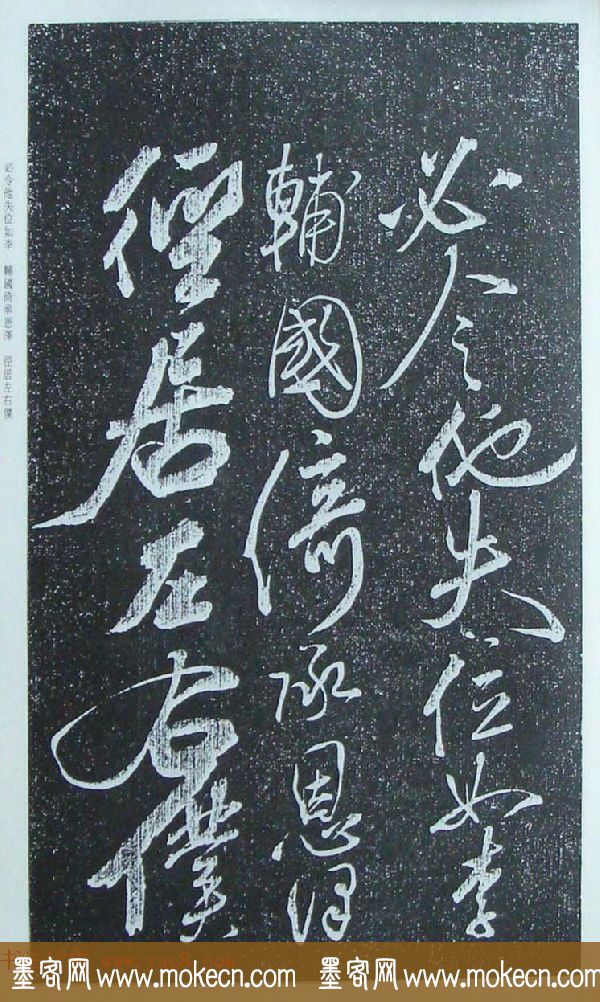 必令他失位如李
輔國倚承恩澤
徑居左右僕
必令他失位如李　輔國倚承恩澤　徑居左右僕
墨客网www.mokecn.com 墨客网www.mokecn.com